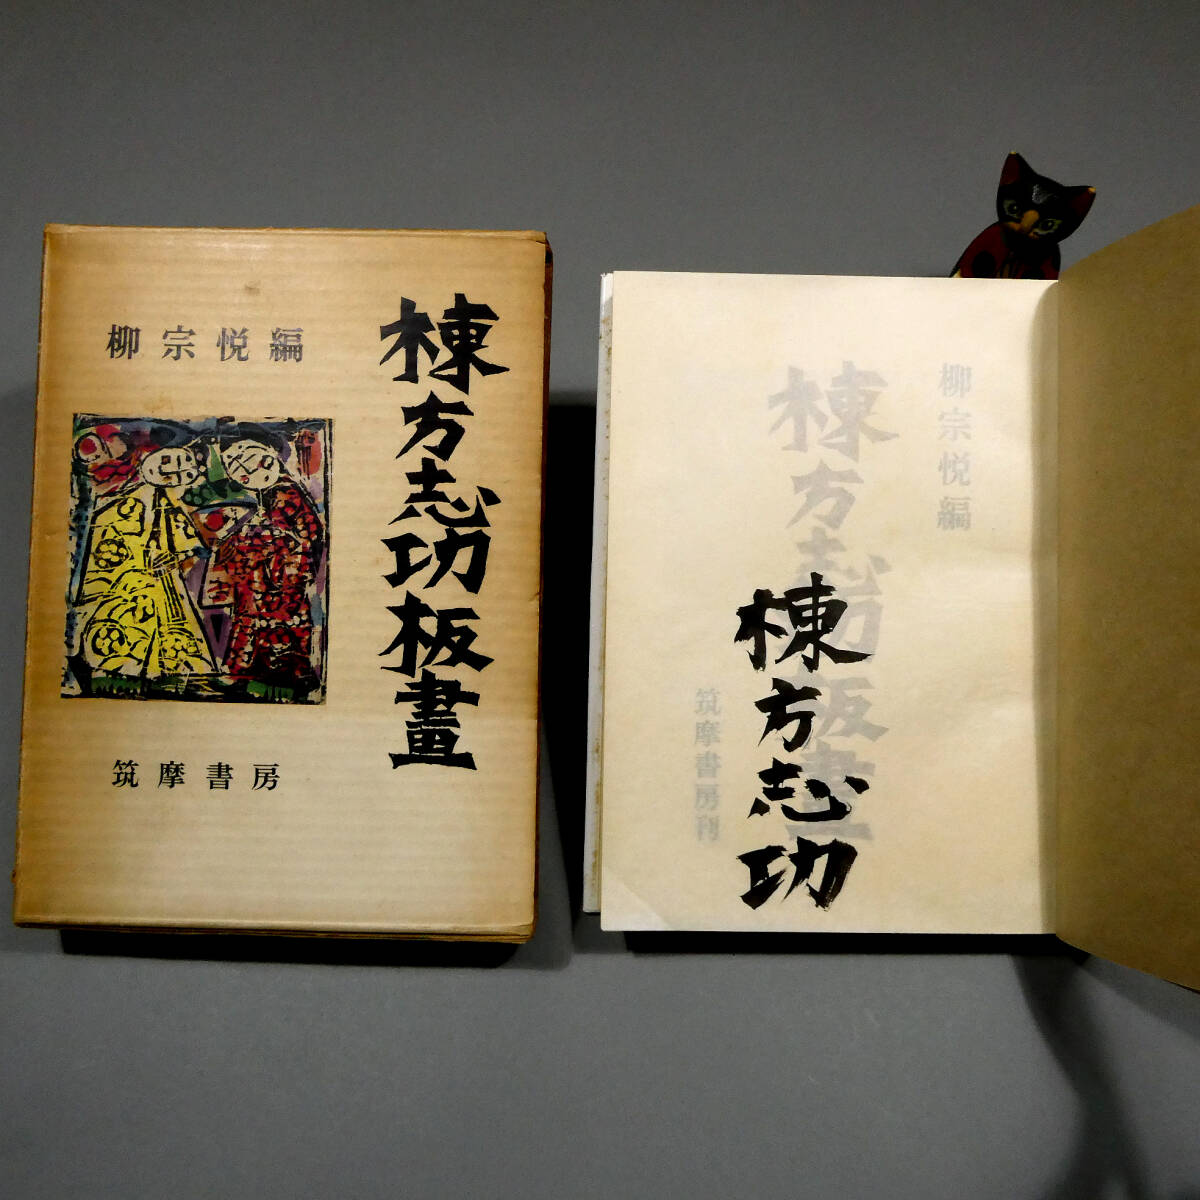 棟方志功板畫
柳宗悦編
筑摩書房
柳宗悦編
棟方志功板畫
筑摩書房刊
棟方志功